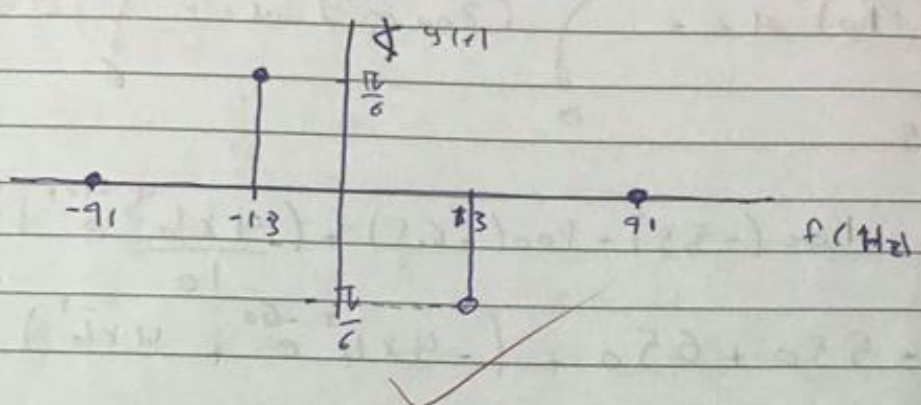 ∠ y(t)
π/6
-91 -13 13 91 f (Hz)
-π/6